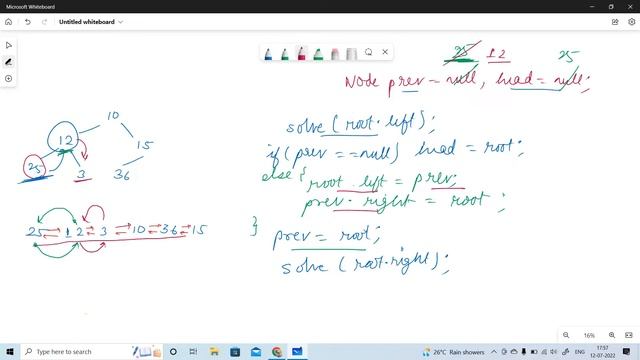 Microsoft Whiteboard
Untitled whiteboard
25 12 25
Node prev = null, head = null;
10
12 15
25 3 36
solve (root.left);
if (prev == null) head = root;
else { root.left = prev;
prev.right = root;
}
prev = root;
solve (root.right);
25 ⇌ 12 ⇌ 3 ⇌ 10 ⇌ 36 ⇌ 15
16%
Type here to search
26°C Rain showers
ENG
17:57
12-07-2022